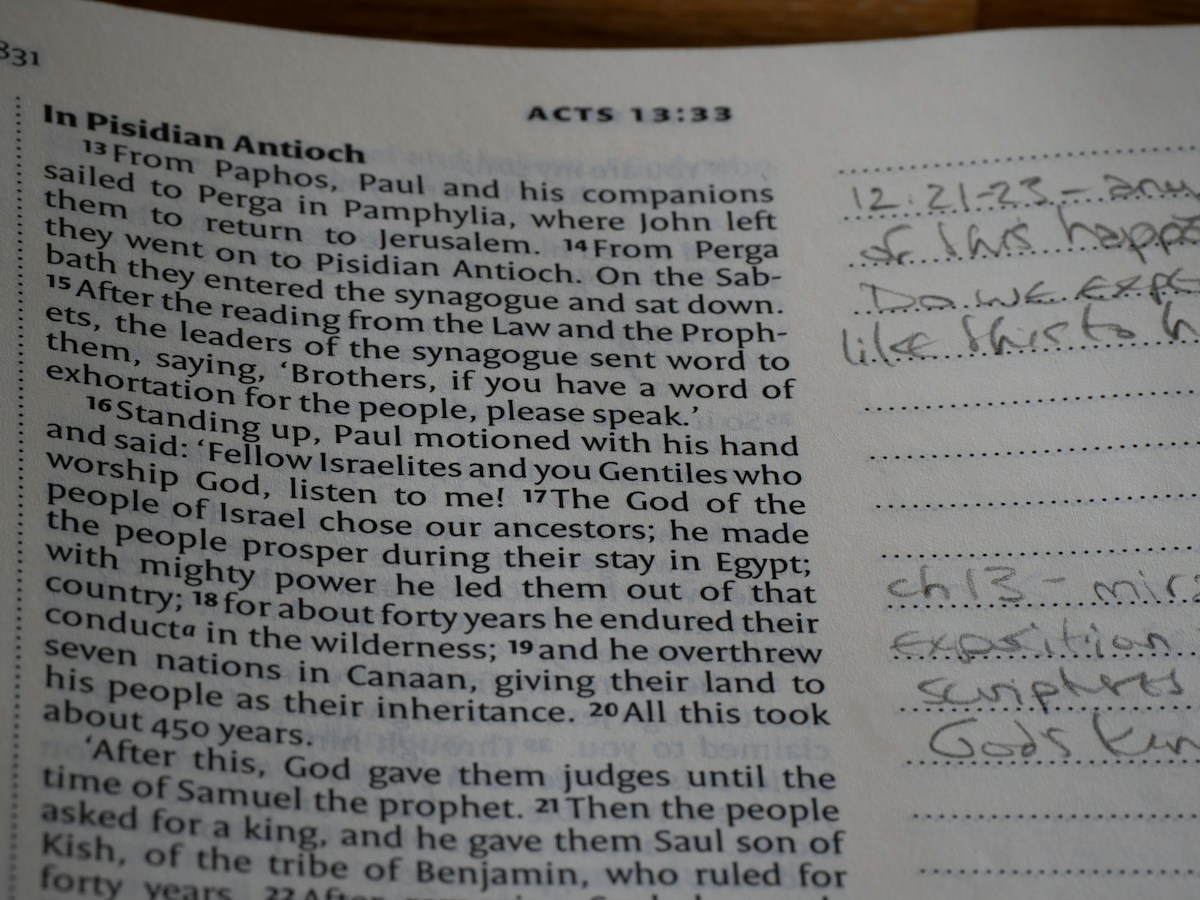 831
ACTS 13:33
In Pisidian Antioch
13 From Paphos, Paul and his companions
sailed to Perga in Pamphylia, where John left
them to return to Jerusalem. 14 From Perga
they went on to Pisidian Antioch. On the Sab-
bath they entered the synagogue and sat down.
15 After the reading from the Law and the Proph-
ets, the leaders of the synagogue sent word to
them, saying, ‘Brothers, if you have a word of
exhortation for the people, please speak.’
16 Standing up, Paul motioned with his hand
and said: ‘Fellow Israelites and you Gentiles who
worship God, listen to me! 17 The God of the
people of Israel chose our ancestors; he made
the people prosper during their stay in Egypt;
with mighty power he led them out of that
country; 18 for about forty years he endured their
conduct a in the wilderness; 19 and he overthrew
seven nations in Canaan, giving their land to
his people as their inheritance. 20 All this took
about 450 years.
‘After this, God gave them judges until the
time of Samuel the prophet. 21 Then the people
asked for a king, and he gave them Saul son of
Kish, of the tribe of Benjamin, who ruled for
forty years. 22 After
12.21-23 - any
of this happe
Do we expe
like this to h
ch 13 - mira
exposition
scriptures
Gods